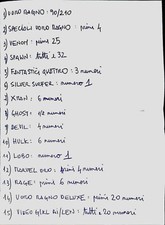 1) UOMO RAGNO: 90/250
2) SPECIALI UOMO RAGNO: primi 4
3) VENOM: primi 25
4) SPAWN: tutti e 32
5) FANTASTICI QUATTRO: 3 numeri
6) SILVER SURFER: numero 1
7) XMEN: 6 numeri
8) GHOST: 12 numeri
9) DEVIL: 4 numeri
10) HULK: 6 numeri
11) LOBO: numero 1
12) DEVIL: primi 4 numeri
13) RAGE: primi 6 numeri
14) UOMO RAGNO DELUXE: primi 20 numeri
15) VIDEO GIRL AI/LEN: tutti e 20 numeri